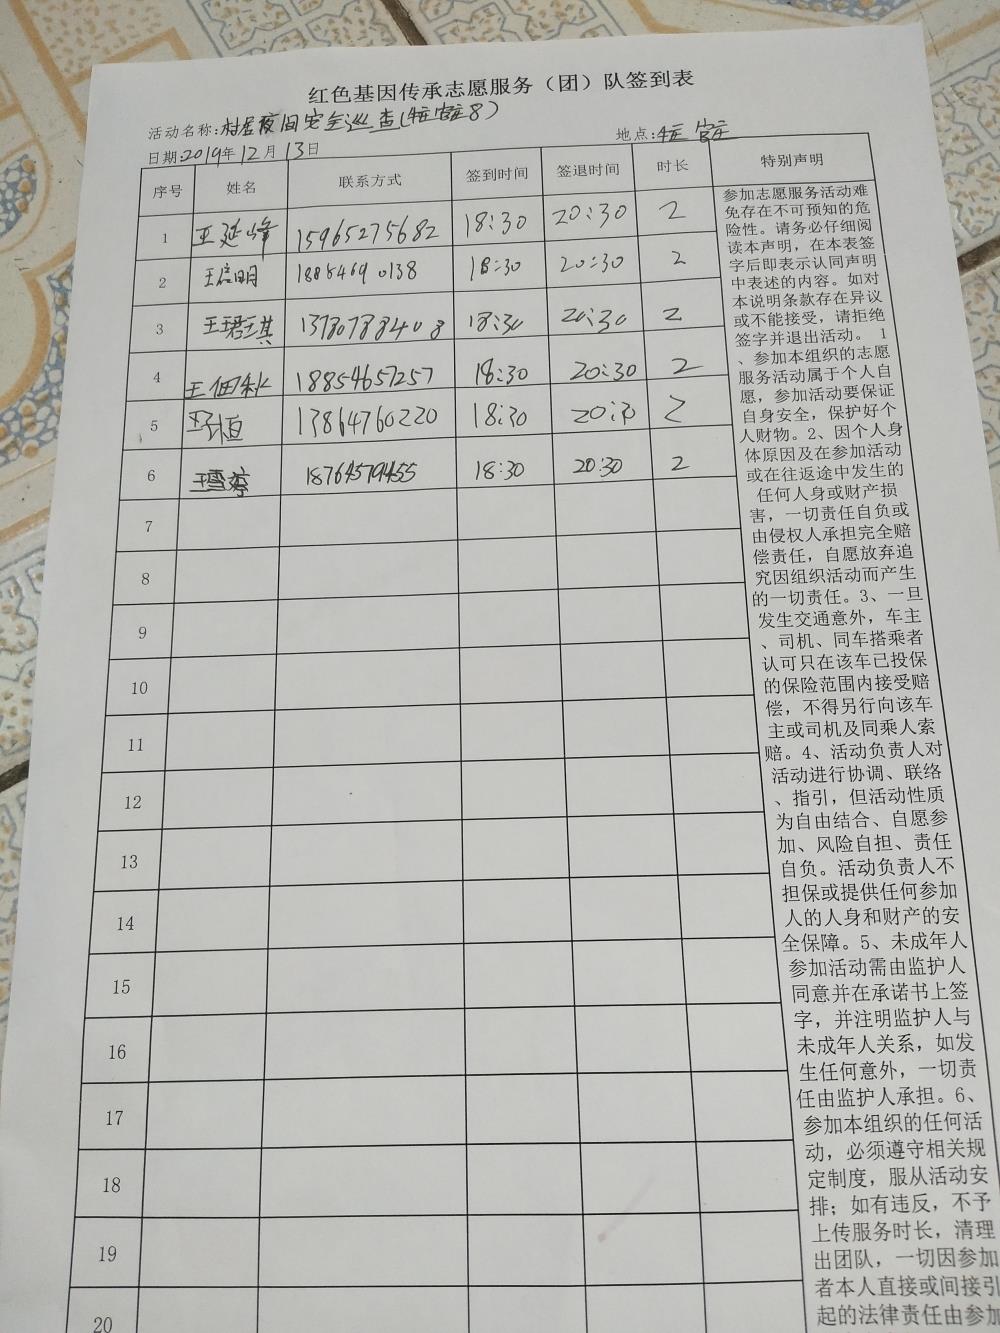 红色基因传承志愿服务（团）队签到表
活动名称:村居夜间安全巡查(
日期:2019年12月13日 地点:
序号 姓名 联系方式 签到时间 签退时间 时长 特别声明
1 王延峰 15965275682 18:30 20:30 2
2 王启明 1885469 0138 18:30 20:30 2
3 王君琪 13780788408 18:30 20:30 2
4 王佃秋 18854657257 18:30 20:30 2
5 13864760220 18:30 20:30 2
6 王雪婷 18764579455 18:30 20:30 2
7
8
9
10
11
12
13
14
15
16
17
18
19
20
参加志愿服务活动难
免存在不可预知的危
险性。请务必仔细阅
读本声明，在本表签
字后即表示认同声明
中表述的内容。如对
本说明条款存在异议
或不能接受，请拒绝
签字并退出活动。 1
、参加本组织的志愿
服务活动属于个人自
愿，参加活动要保证
自身安全，保护好个
人财物。2、因个人身
体原因及在参加活动
或在往返途中发生的
任何人身或财产损
害，一切责任自负或
由侵权人承担完全赔
偿责任，自愿放弃追
究因组织活动而产生
的一切责任。3、一旦
发生交通意外，车主
、司机、同车搭乘者
认可只在该车已投保
的保险范围内接受赔
偿，不得另行向该车
主或司机及同乘人索
赔。4、活动负责人对
活动进行协调、联络
、指引，但活动性质
为自由结合、自愿参
加、风险自担、责任
自负。活动负责人不
担保或提供任何参加
人的人身和财产的安
全保障。5、未成年人
参加活动需由监护人
同意并在承诺书上签
字，并注明监护人与
未成年人关系，如发
生任何意外，一切责
任由监护人承担。6、
参加本组织的任何活
动，必须遵守相关规
定制度，服从活动安
排；如有违反，不予
上传服务时长，清理
出团队，一切因参加
者本人直接或间接引
起的法律责任由参加